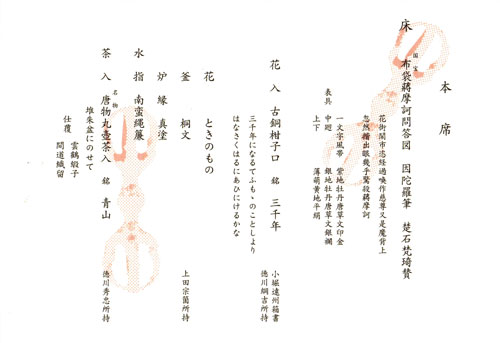 本席
床 国宝 布袋蔣摩訶問答図 因陀羅筆 楚石梵琦賛
花街鬧市恣経過喚作慈尊又是魔背上
忽然揩出眼幾乎驚殺蔣摩訶
表具 一文字風帯 紫地牡丹唐草文印金
中廻 銀地牡丹唐草文銀襴
上下 薄萌黄地平絹
花入 古銅柑子口 銘 三千年 小堀遠州箱書
徳川綱吉所持
三千年になるてふもゝのことしより
はなさくはるにあひにけるかな
花 ときのもの
釜 桐文 上田宗箇所持
炉縁 真塗
水指 南蛮縄簾
茶入 名物 唐物丸壺茶入 銘 青山 徳川秀忠所持
堆朱盆にのせて
仕覆 雲鶴緞子
間道織留